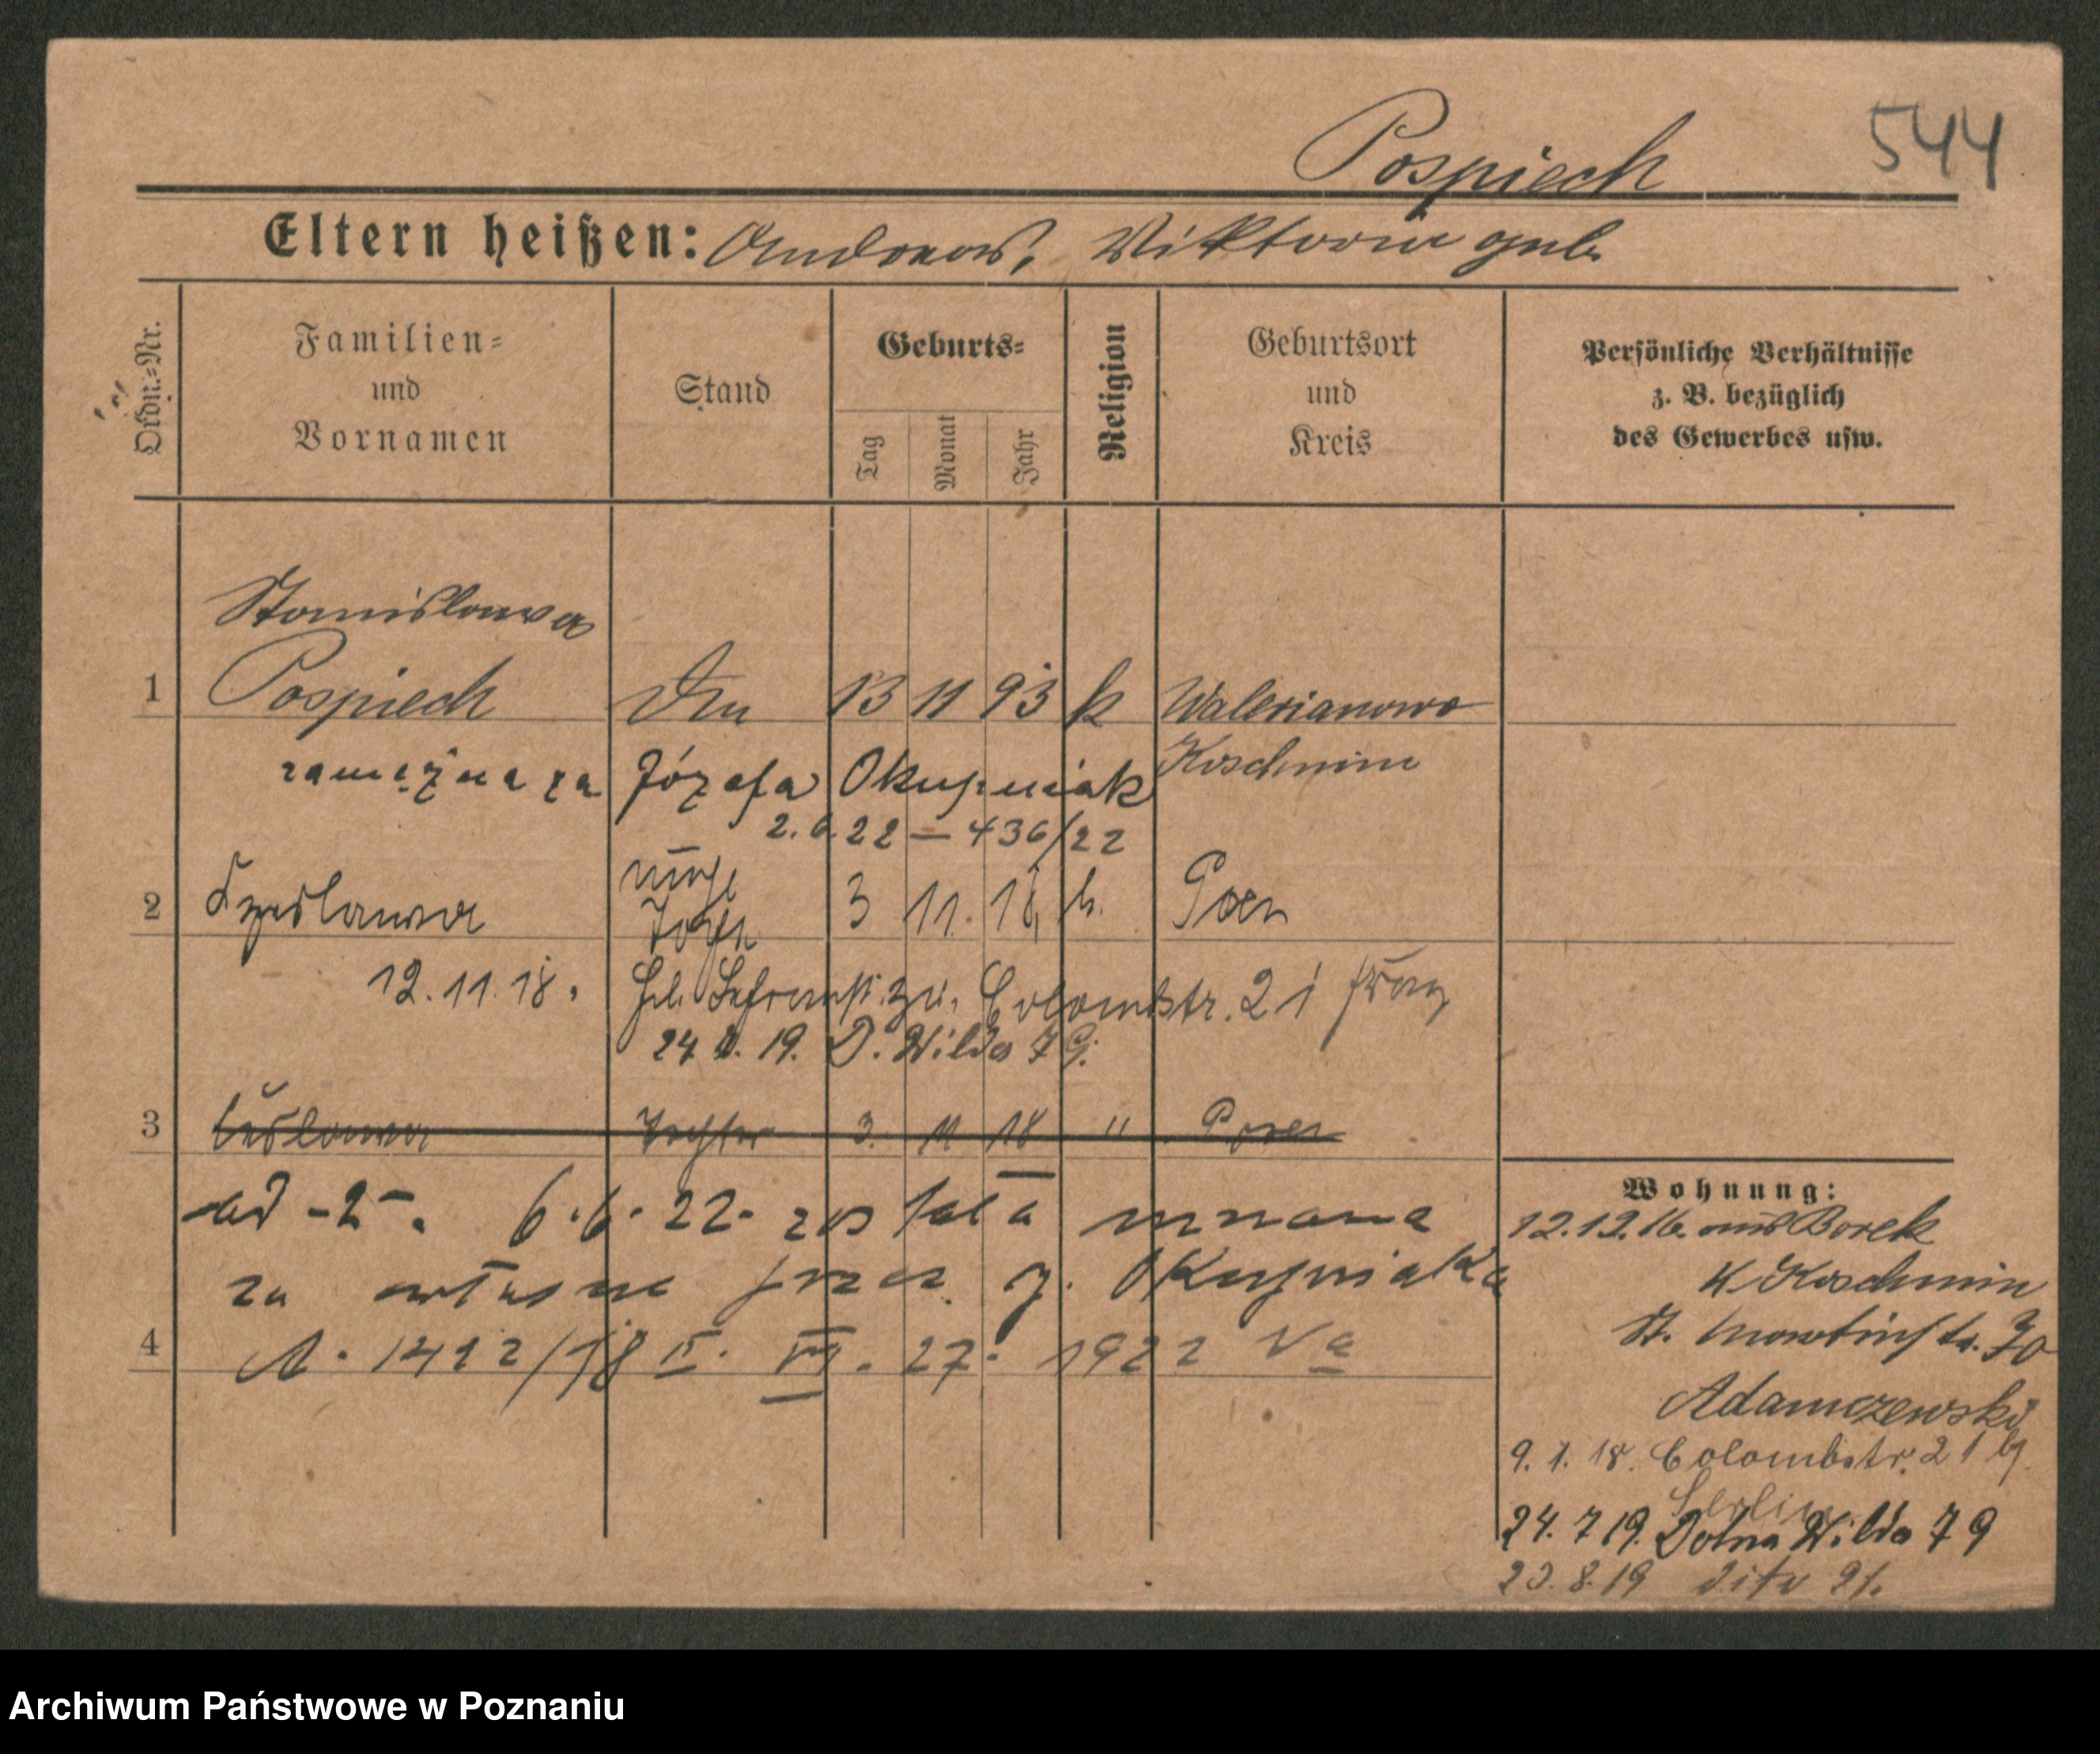 544
Pospiech
Eltern heißen: Andreas, Viktoria geb.
Ordn.-Nr.
Familien-
und
Vornamen
Stand
Geburts-
Tag
Monat
Jahr
Religion
Geburtsort
und
Kreis
Persönliche Verhältnisse
z. B. bezüglich
des Gewerbes usw.
Stanislawa
1 Pospiech 13 11 93 k Walerianowo
Koschmin
zamężna za Józefa Okupniak
2.6.22 — 436/22
2 Czeslawa 3 11. 18 k. Posen
12.11.18. Colombstr. 21
24. 19. D. Wilda 79.
3 Ceslawa Tochter 3. 11 18 " Posen
ad -2-. 6.6.22. została uznana
za własne przez J. Okupniaka
4 A. 1412/18 II. VII. 27. 1922 Va
Wohnung:
12.12.16. aus Borek
K Koschmin
St. Martinstr. 70
Adamczewski
9.1.18. Colombstr. 21 bj.
24.7 19. Dolna Wilda 79
23.8.19 dito 21.
Archiwum Państwowe w Poznaniu